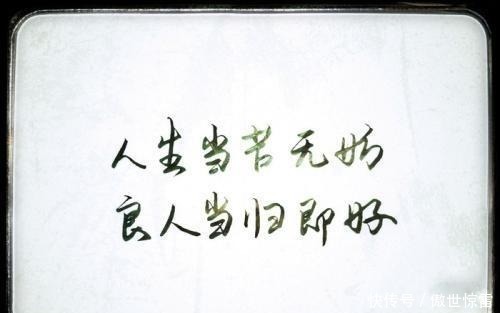 人生当苦无妨
良人当归即好
快传号／傲世惊雷